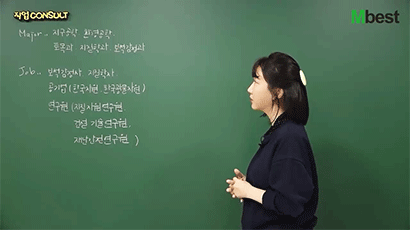 직업 CONSULT
Mbest
Major - 지구공학 환경공학
토목과 지질학사 보석감정사
Job - 보석감정사 지질학사
공기업 (한국지원 한국광물자원)
연구원 (지질자원연구원
건설기술연구원
재난안전연구원 )